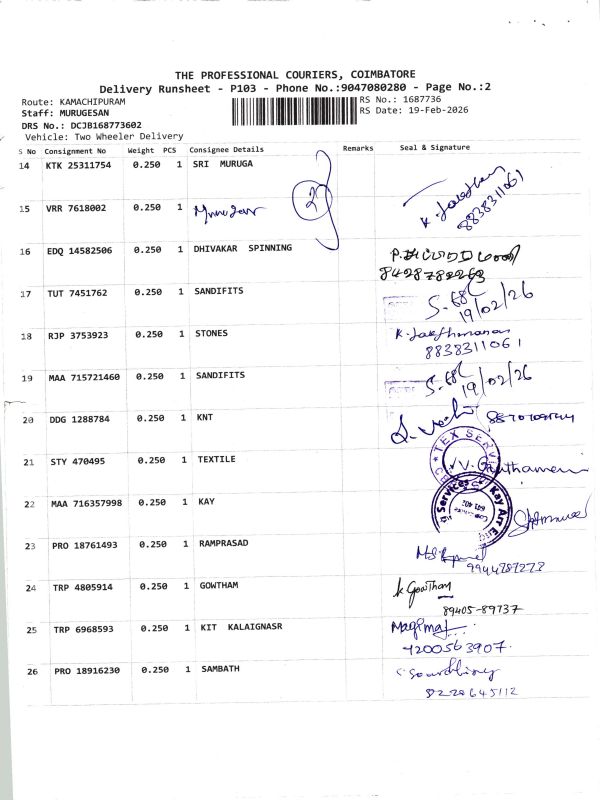 THE PROFESSIONAL COURIERS, COIMBATORE
Delivery Runsheet - P103 - Phone No.:9047080280 - Page No.:2
Route: KAMACHIPURAM
RS No.: 1687736
Staff: MURUGESAN
RS Date: 19-Feb-2026
DRS No.: DCJB168773602
Vehicle: Two Wheeler Delivery
S No Consignment No Weight PCS Consignee Details Remarks Seal & Signature
14 KTK 25311754 0.250 1 SRI MURUGA
8838311061
15 VRR 7618002 0.250 1
2
16 EDQ 14582506 0.250 1 DHIVAKAR SPINNING
8428782263
17 TUT 7451762 0.250 1 SANDIFITS
19/02/26
18 RJP 3753923 0.250 1 STONES
K. Lakshmanan
8838311061
19 MAA 715721460 0.250 1 SANDIFITS
19/02/26
20 DDG 1288784 0.250 1 KNT
21 STY 470495 0.250 1 TEXTILE
TEX SERV
22 MAA 716357998 0.250 1 KAY
Kay Arr
Services
23 PRO 18761493 0.250 1 RAMPRASAD
9944787278
24 TRP 4805914 0.250 1 GOWTHAM
K Gowtham
89405-89737
25 TRP 6968593 0.250 1 KIT KALAIGNASR
7200563907.
26 PRO 18916230 0.250 1 SAMBATH
8220645112